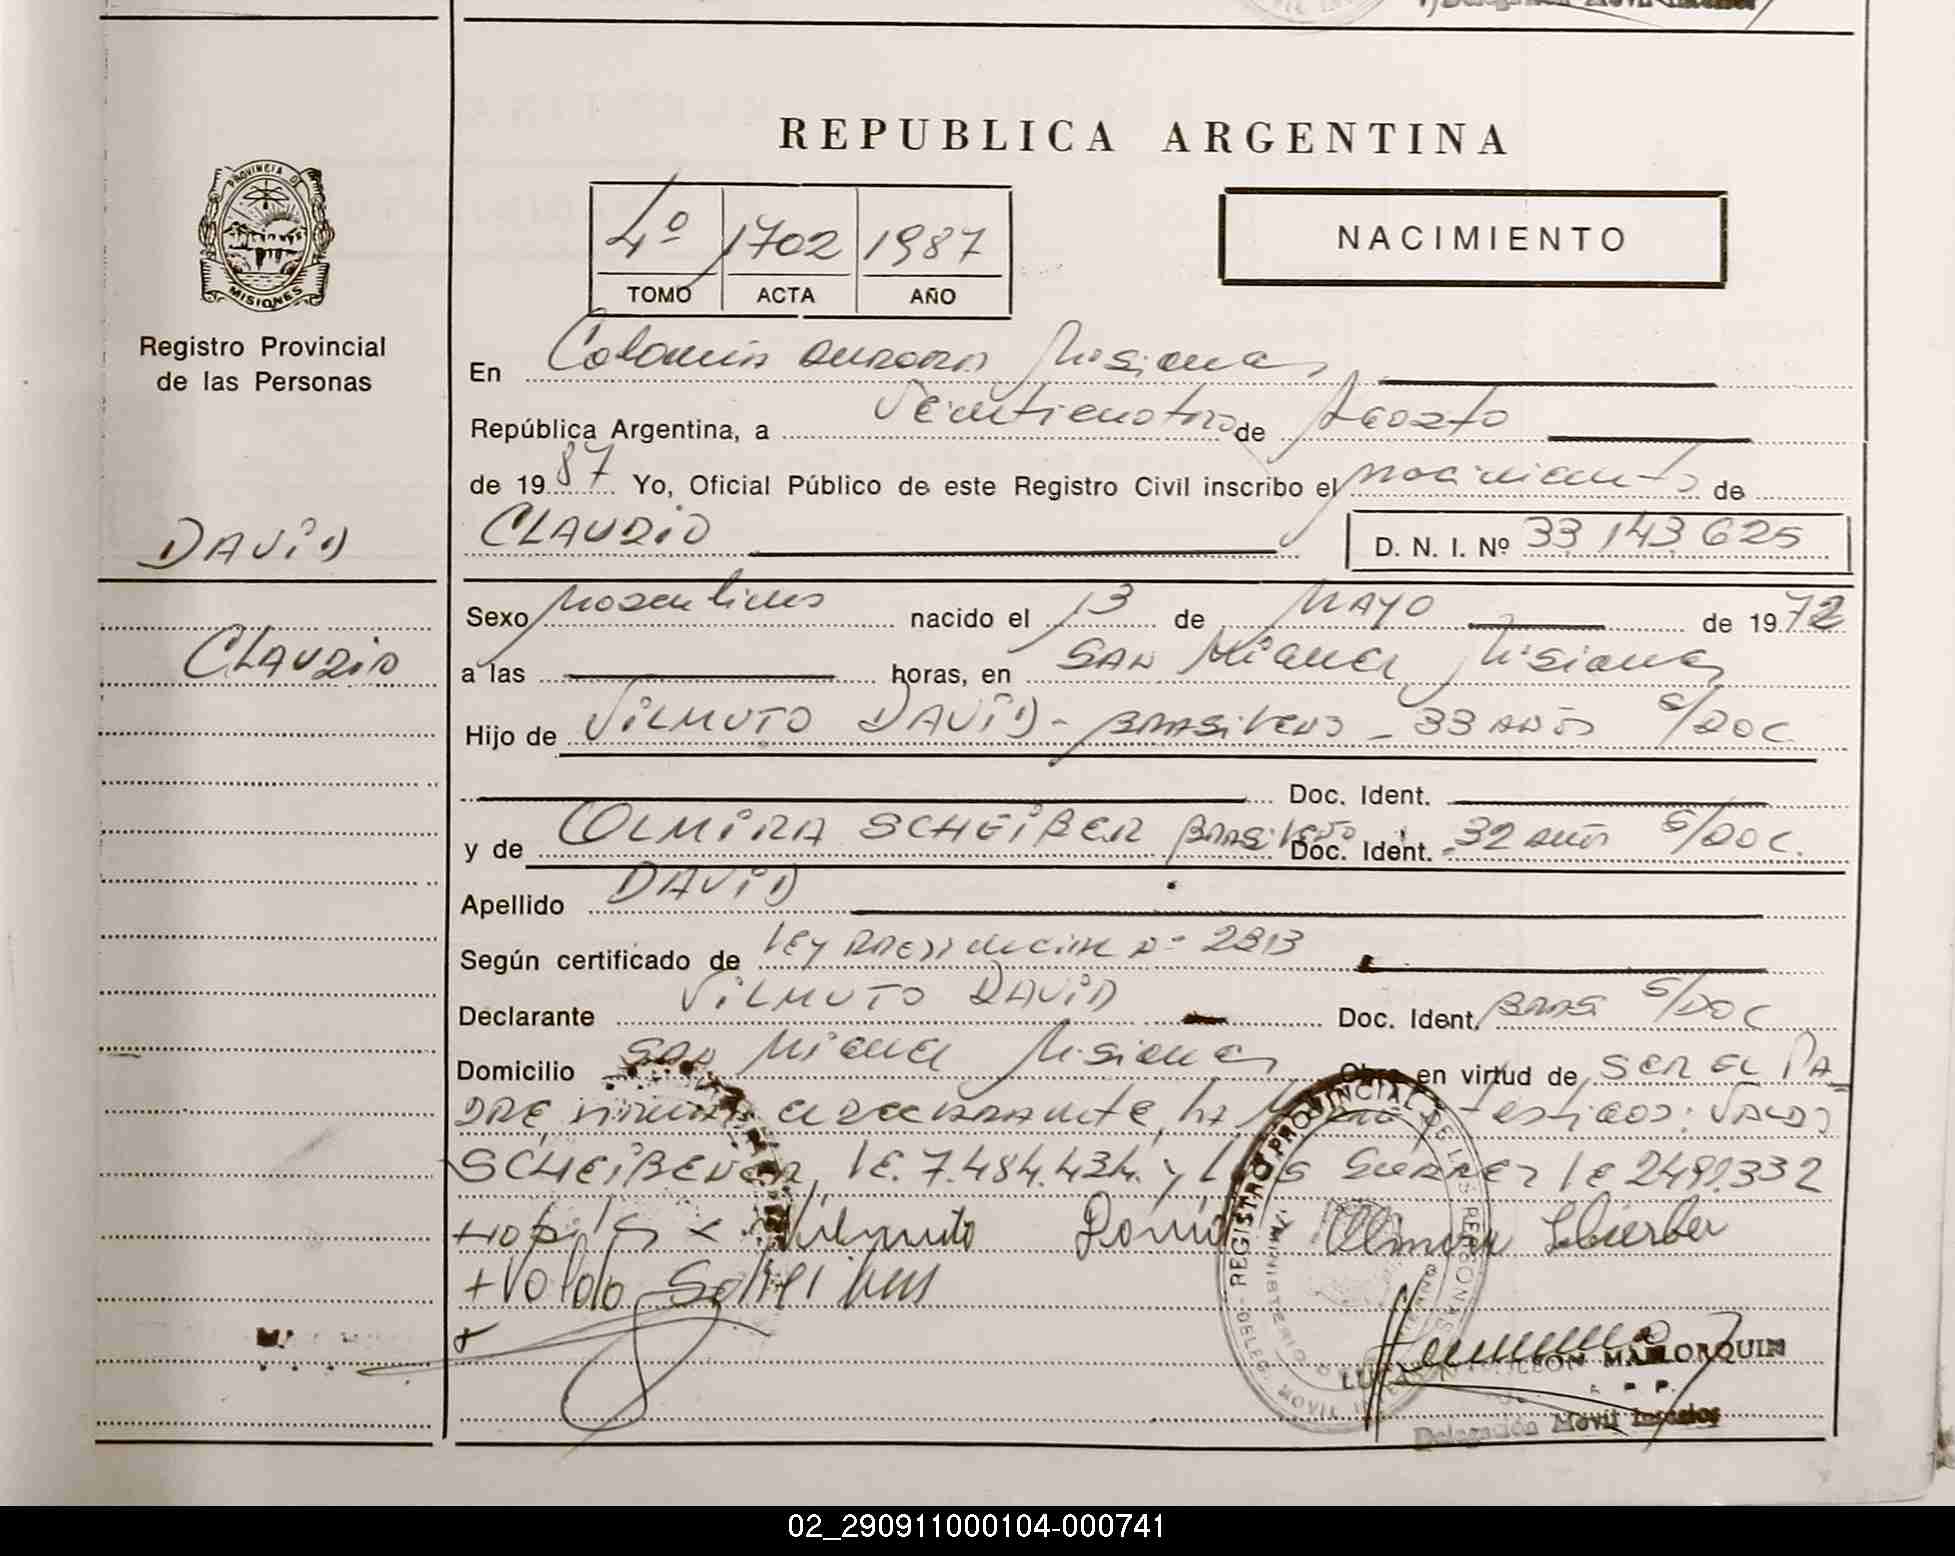 REPUBLICA ARGENTINA
PROVINCIA DE
MISIONES
Registro Provincial
de las Personas
4º 1702 1987
TOMO ACTA AÑO
NACIMIENTO
En Colonia Aurora Misiones
República Argentina, a Veinticuatro de Agosto
de 1987 Yo, Oficial Público de este Registro Civil inscribo el nacimiento de
DAVID
CLAUDIO D. N. I. Nº 33.143.625
CLAUDIO
Sexo Masculino nacido el 13 de MAYO de 1972
a las horas, en SAN Miguel Misiones
Hijo de VILMUTO DAVID - BRASILENO - 33 AÑOS S/DOC.
Doc. Ident.
y de OLMIRA SCHEIBER BRASILENO Doc. Ident. - 32 AÑOS S/DOC.
Apellido DAVID
Según certificado de LEY PRESIDENCIAL Nº 2813
Declarante VILMUTO DAVID Doc. Ident. BRAS S/DOC
Domicilio SAN Miguel Misiones Obra en virtud de SER EL PA-
DRE, el declarante, testigos: VALDO
LE. 7.484.434. y LE 2491.332
Vilmuto David Olmira
+ Valdo
REGISTRO PROVINCIAL DE LAS PERSONAS
MINISTERIO
DELEG. MOVIL
MALLORQUIN
Delegación Móvil
02_290911000104-000741